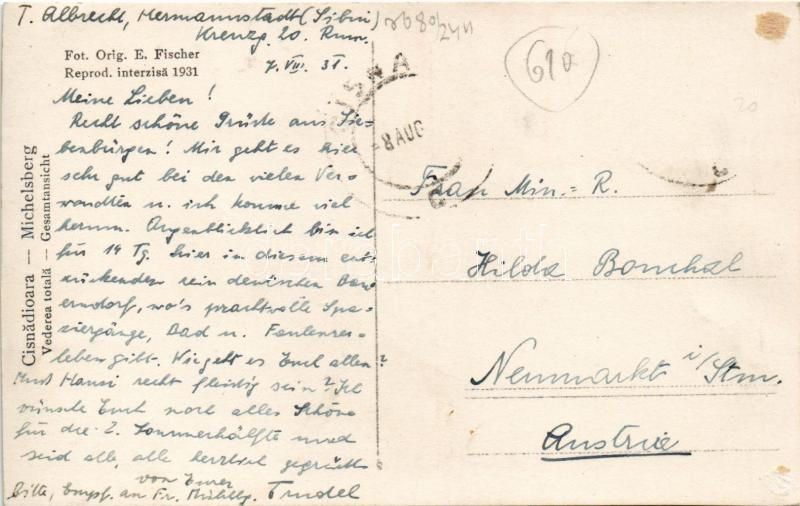 T. Albrecht, Hermannstadt (Sibiu)
Kreuzg. 20. Rum.
7. VIII. 31.
Fot. Orig. E. Fischer
Reprod. interzisă 1931
Cisnădioara — Michelsberg
Vederea totală — Gesamtansicht
Meine Lieben!
Recht schöne Grüße aus Sie-
benbürgen! Mir geht es hier
sehr gut bei den vielen Ver-
wandten u. ich komme viel
herum. Augenblicklich bin ich
für 14 Tg. hier in diesem ent-
zückenden rein deutschen Bau-
erndorf, wo's prachtvolle Spa-
ziergänge, Bad u. Faulenzer-
leben gibt. Wie geht es Euch allen?
Muss Hansi recht fleißig sein? Ich
wünsche Euch noch alles Schöne
für die 2. Sommerhälfte und
seid alle, alle herzlich gegrüßt
von Eurer
Trudel
Bitte, Empf. an Fr.
8 AUG
610
20
Frau Min.-R.
Hilda Bouchal
Neumarkt i/Stm.
Austria